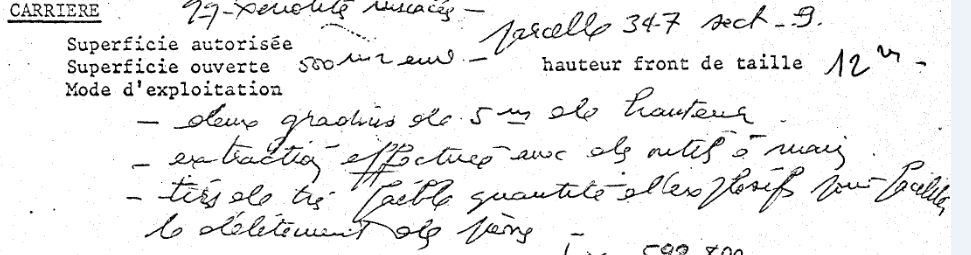 CARRIERE
parcelle 347 sect - 9.
Superficie autorisée
Superficie ouverte 500 m2 env. - hauteur front de taille 12 m -
Mode d'exploitation
- deux gradins de 5 m de hauteur.
- extraction effectuée avec des outils à main.
- tirs de très faible quantité d'explosifs pour faciliter
le délitement des pierres -